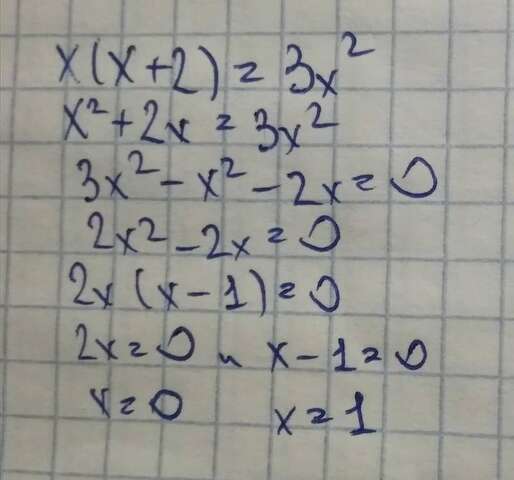 x(x+2)=3x²
x²+2x=3x²
3x²-x²-2x=0
2x²-2x=0
2x(x-1)=0
2x=0 и x-1=0
x=0 x=1